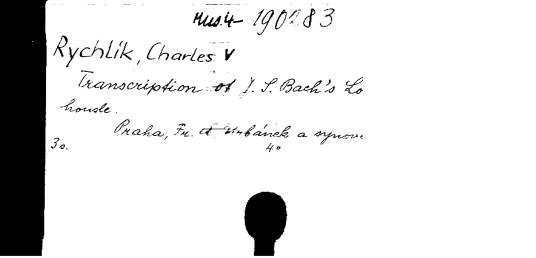 Mus.4 190283
Rychlík, Charles V
Transcription of I. S. Bach's Lo
houde.
Praha, Fr. A Urbánek a synove
30. 4°